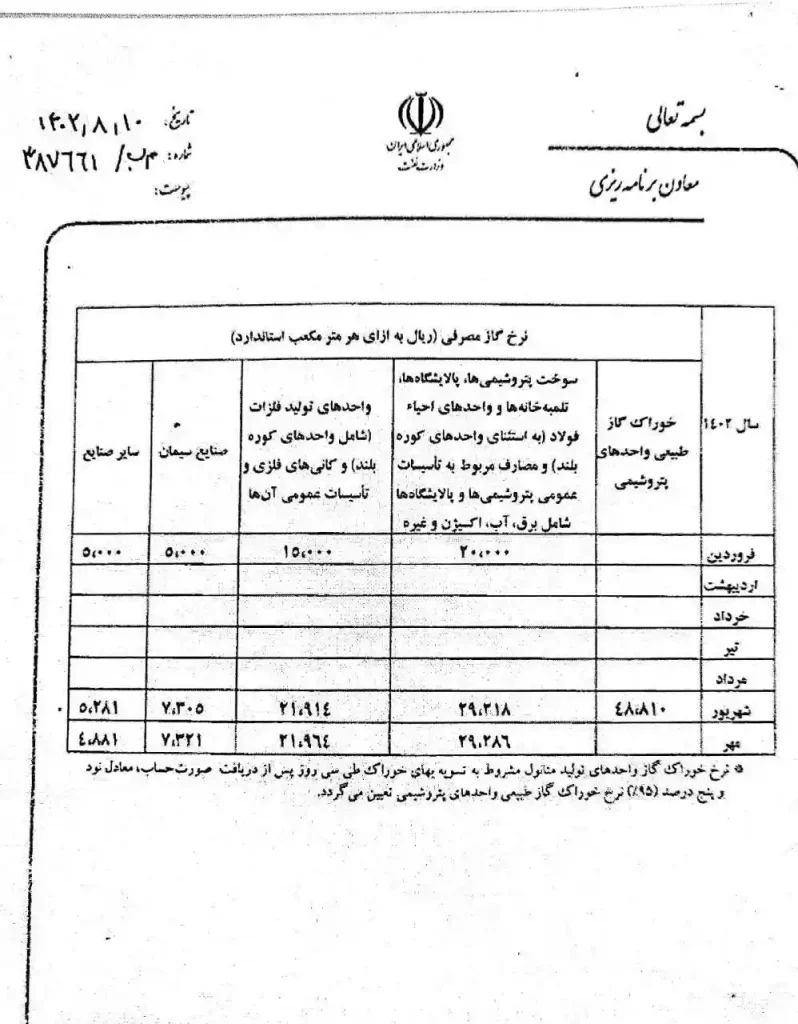 بسمه تعالی
معاون برنامه ریزی
جمهوری اسلامی ایران
وزارت نفت
تاریخ: ۱۴۰۲٫۸٫۱۰
شماره: م‌ب/ ۳۸۷٦٦۱
پیوست:
سال ۱٤۰۲
نرخ گاز مصرفی (ریال به ازای هر متر مکعب استاندارد)
خوراک گاز
طبیعی واحدهای
پتروشیمی
سوخت پتروشیمی‌ها، پالایشگاه‌ها،
تلمبه‌خانه‌ها و واحدهای احیاء
فولاد (به استثنای واحدهای کوره
بلند) و مصارف مربوط به تأسیسات
عمومی پتروشیمی‌ها و پالایشگاه‌ها
شامل برق، آب، اکسیژن و غیره
واحدهای تولید فلزات
(شامل واحدهای کوره
بلند) و کانی‌های فلزی و
تأسیسات عمومی آن‌ها
صنایع سیمان
سایر صنایع
فروردین ۲۰،۰۰۰ ۱٥،۰۰۰ ٥،۰۰۰ ٥،۰۰۰
اردیبهشت
خرداد
تیر
مرداد
شهریور ٤۸،۸۱۰ ۲۹،۲۱۸ ۲۱،۹۱٤ ۷،۳۰٥ ٥،۲۸۱
مهر ۲۹،۲۸٦ ۲۱،۹٦٤ ۷،۳۲۱ ٤،۸۸۱
* نرخ خوراک گاز واحدهای تولید متانول مشروط به تسویه بهای خوراک طی سی روز پس از دریافت صورت‌حساب، معادل نود
و پنج درصد (۹٥٪) نرخ خوراک گاز طبیعی واحدهای پتروشیمی تعیین می‌گردد.